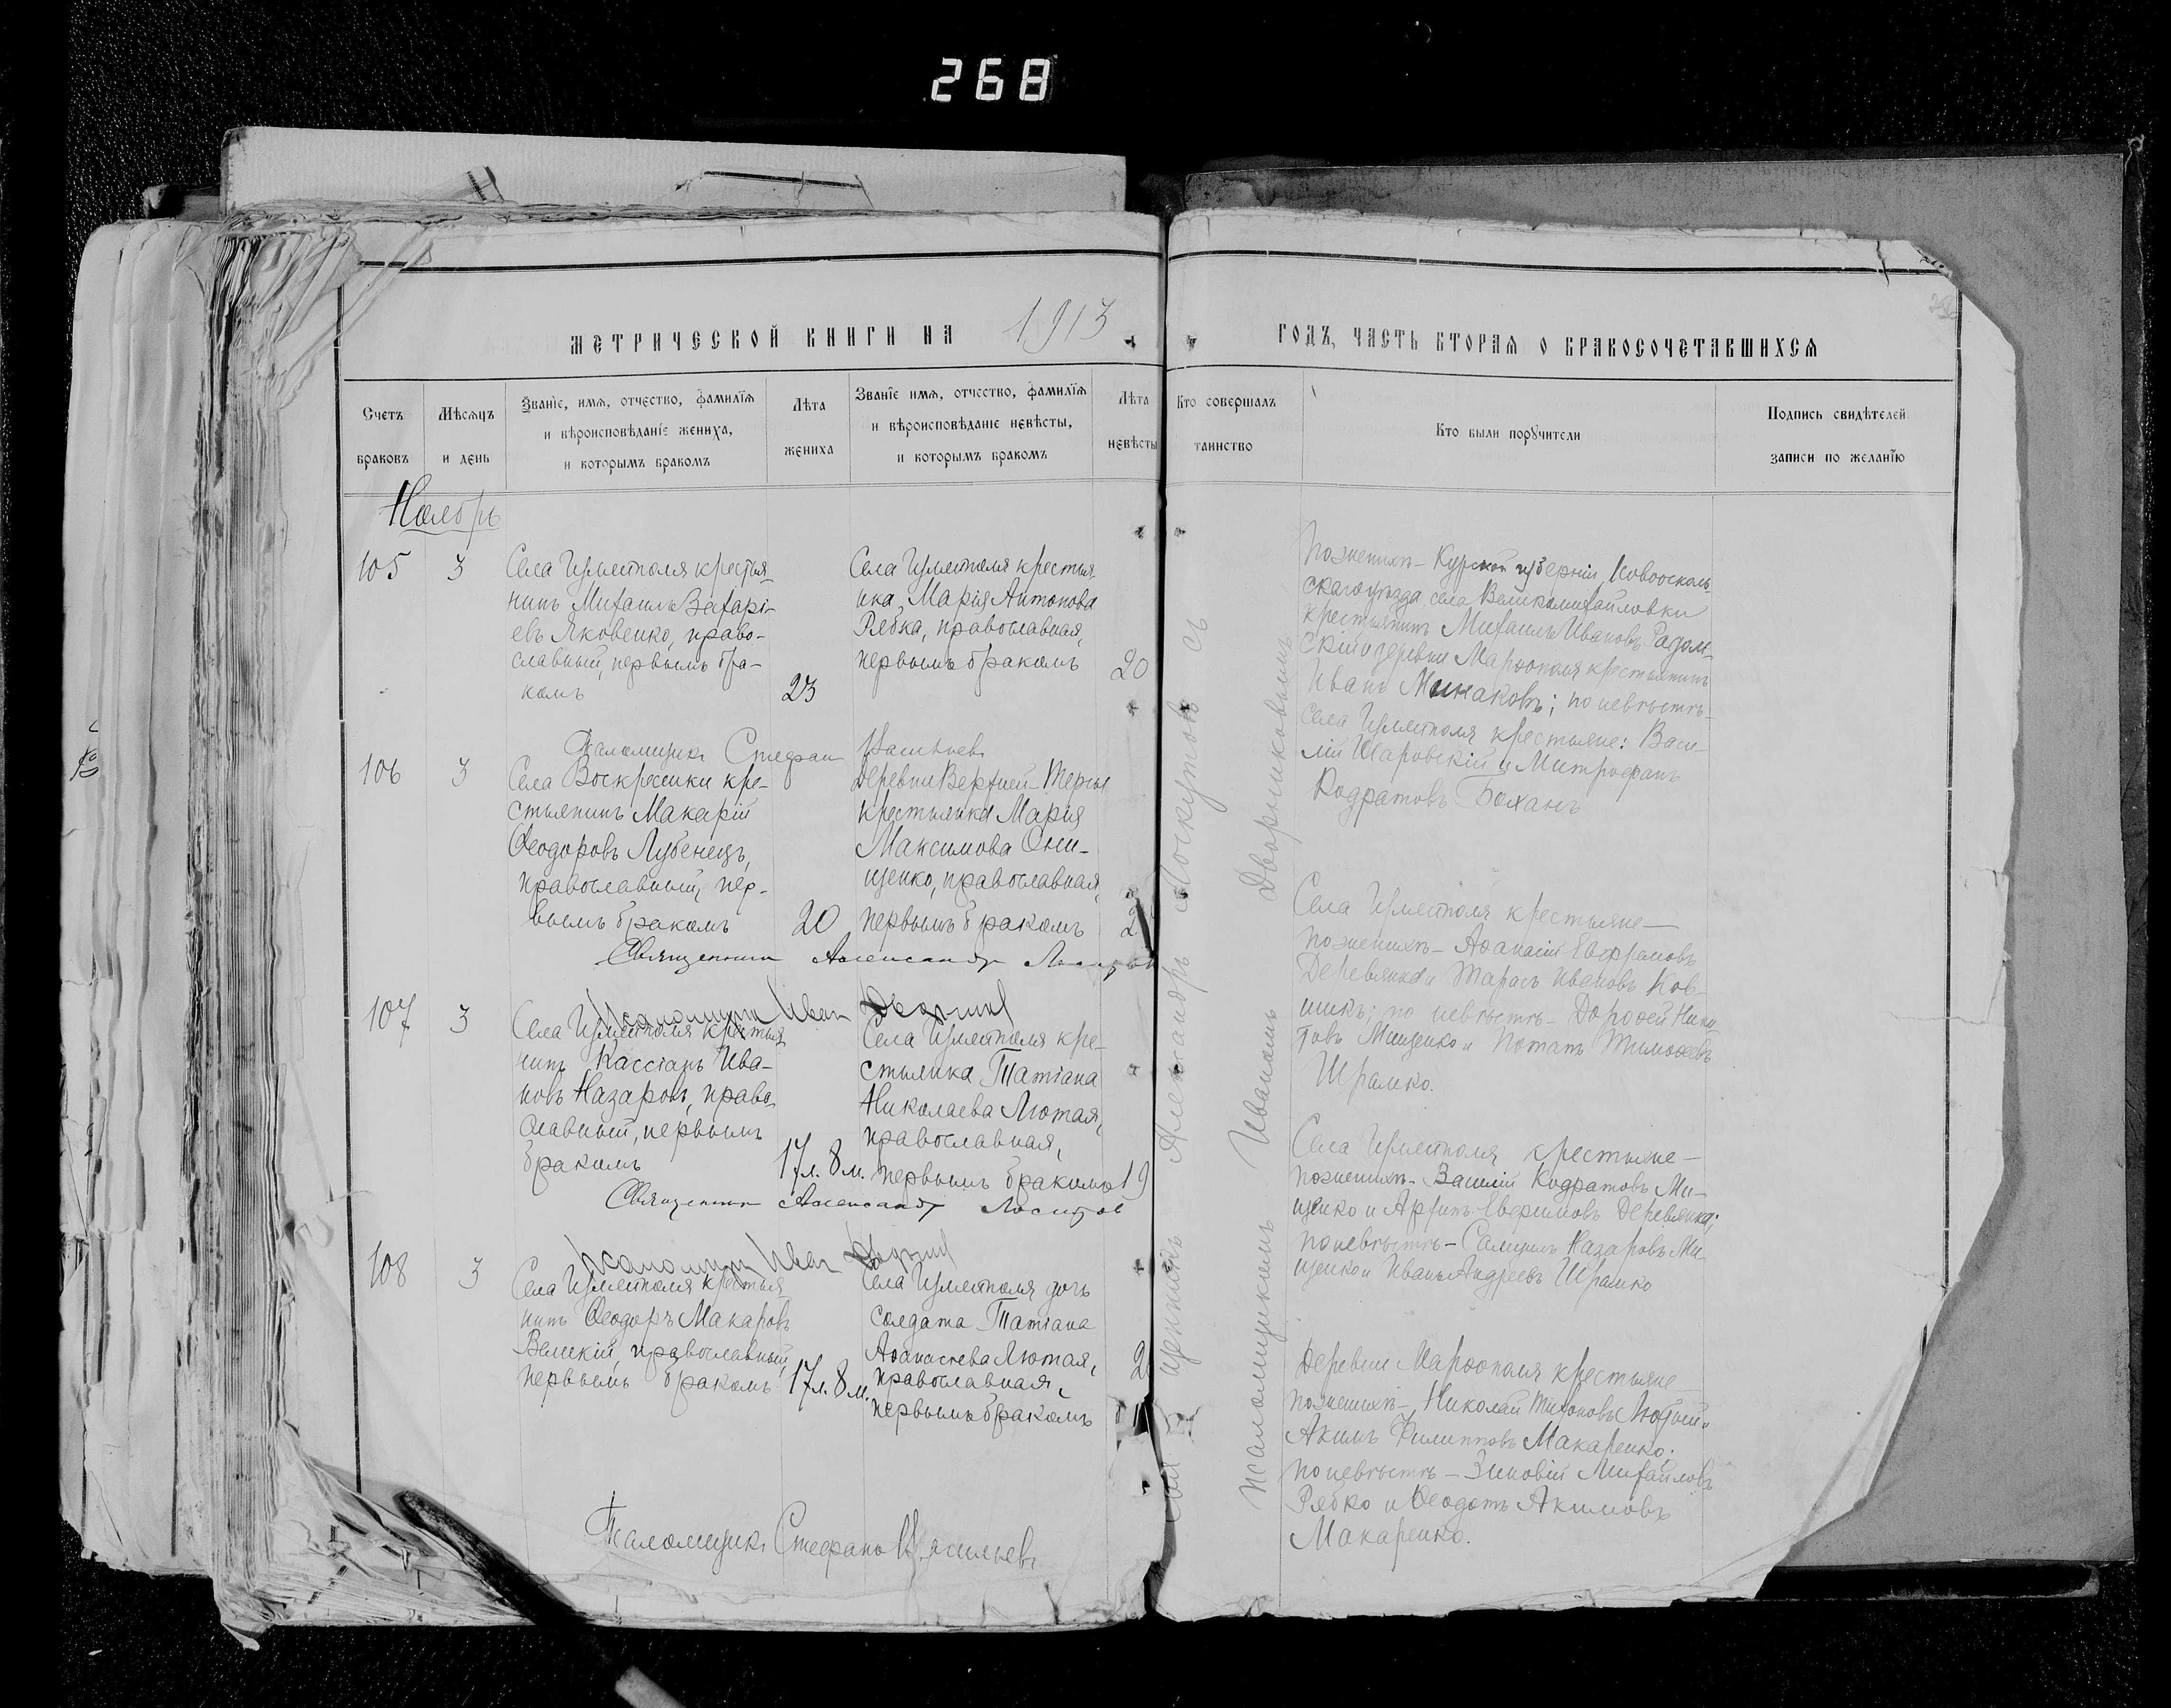 268
МЕТРИЧЕСКОЙ КНИГИ НА 1913
ГОДЪ, ЧАСТЬ ВТОРАЯ О БРАКОСОЧЕТАВШИХСЯ
Счетъ
браковъ
Мѣсяцъ
и день
Званіе, имя, отчество, фамилія
и вѣроисповѣданіе жениха,
и которымъ бракомъ
Лѣта
жениха
Званіе имя, отчество, фамилія
и вѣроисповѣданіе невѣсты,
и которымъ бракомъ
Лѣта
невѣсты
Кто совершалъ
таинство
Кто были поручители
Подпись свидѣтелей
записи по желанію
Ноябрь
105
3
Села Измѣтполя крестья-
нинъ Михаилъ Захарі-
евъ Яковенко, право-
славный, первымъ бра-
комъ
23
Села Измѣтполя крестьян-
ка Марія Антонова
Рябка, православная,
первымъ бракомъ
20
По женихѣ - Курской губерніи, Новоосколь-
скаго уѣзда села Великомихайловки
крестьянинъ Михаилъ Ивановъ
и деревни Марфополя крестьянинъ
Иванъ Минаковъ; по невѣстѣ -
села Измѣтполя крестьяне: Васи-
лій Шаровскій и Митрофанъ
Кодратовъ Боханъ
Псаломщикъ Стефанъ Васильевъ
106
3
Села Воскресенки кре-
стьянинъ Макарій
Ѳеодоровъ Лубенецъ,
православный, пер-
вымъ бракомъ
20
Деревни Верхней-Терсы
крестьянка Марія
Максимова Они-
щенко, православная,
первымъ бракомъ
Села Измѣтполя крестьяне -
по женихѣ - Аѳанасій Евфремовъ
Деревянка и Тарасъ Ивановъ Ков-
шикъ; по невѣстѣ - Дороѳей Ники-
товъ Мищенко и Потапъ Тимоѳеевъ
Шрамко.
Священникъ Александръ Лоскутовъ
Псаломщикъ Иванъ
107
3
Села Измѣтполя крестья-
нинъ Кассіанъ Ива-
новъ Назаровъ, право-
славный, первымъ
бракомъ
17 л. 8 м.
Села Измѣтполя кре-
стьянка Татіана
Николаева Лютая,
православная,
первымъ бракомъ
19
Села Измѣтполя крестьяне -
по женихѣ - Василій Кодратовъ Ми-
щенко и Архипъ Евфимовъ Деревянка;
по невѣстѣ - Самуилъ Назаровъ Ми-
щенко и Иванъ Андреевъ Шрамко
Священникъ Александръ Лоскутовъ
Псаломщикъ Иванъ
108
3
Села Измѣтполя крестья-
нинъ Ѳеодоръ Макаровъ
Великій, православный,
первымъ бракомъ
17 л. 8 м.
Села Измѣтполя дочь
солдата Татіана
Аѳанасіева Лютая,
православная,
первымъ бракомъ
Деревни Марфополя крестьяне -
по женихѣ - Николай Тихоновъ Лютый и
Акимъ Филипповъ Макаренко;
по невѣстѣ - Зиновій Михайловъ
Рябко и Ѳеодотъ Акимовъ
Макаренко.
Псаломщикъ Стефанъ Васильевъ
Александръ Лоскутовъ съ
псаломщикомъ Иваномъ Дворниковымъ